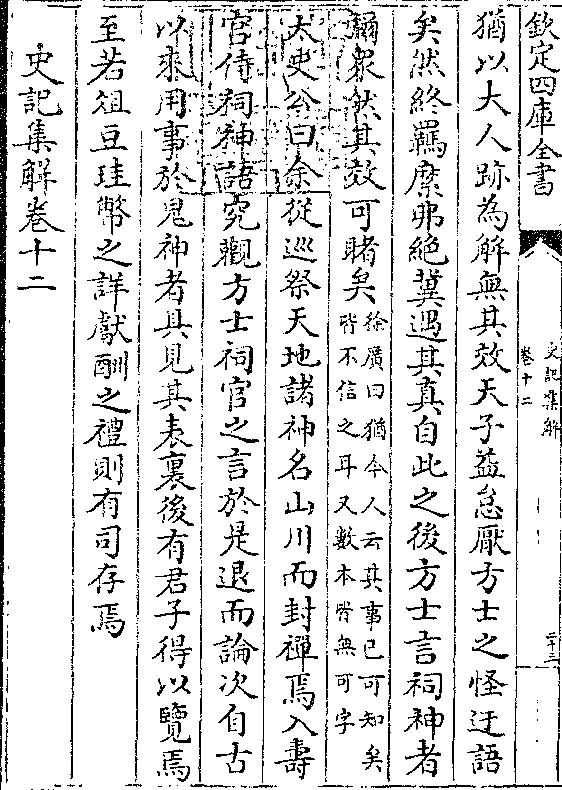 欽定四庫全書
史記集解
卷十二
二十三
猶以大人跡為解無其效天子益怠厭方士之怪迂語
矣然終羈縻弗絕冀遇其真自此之後方士言祠神者
彌衆然其效可睹矣
徐廣曰猶今人云其事已可知矣
皆不信之耳又數本皆無可字
太史公曰余從巡祭天地諸神名山川而封禪焉入壽
宮侍祠神語究觀方士祠官之言於是退而論次自古
以來用事於鬼神者具見其表裏後有君子得以覽焉
至若俎豆珪幣之詳獻酬之禮則有司存焉
史記集解卷十二